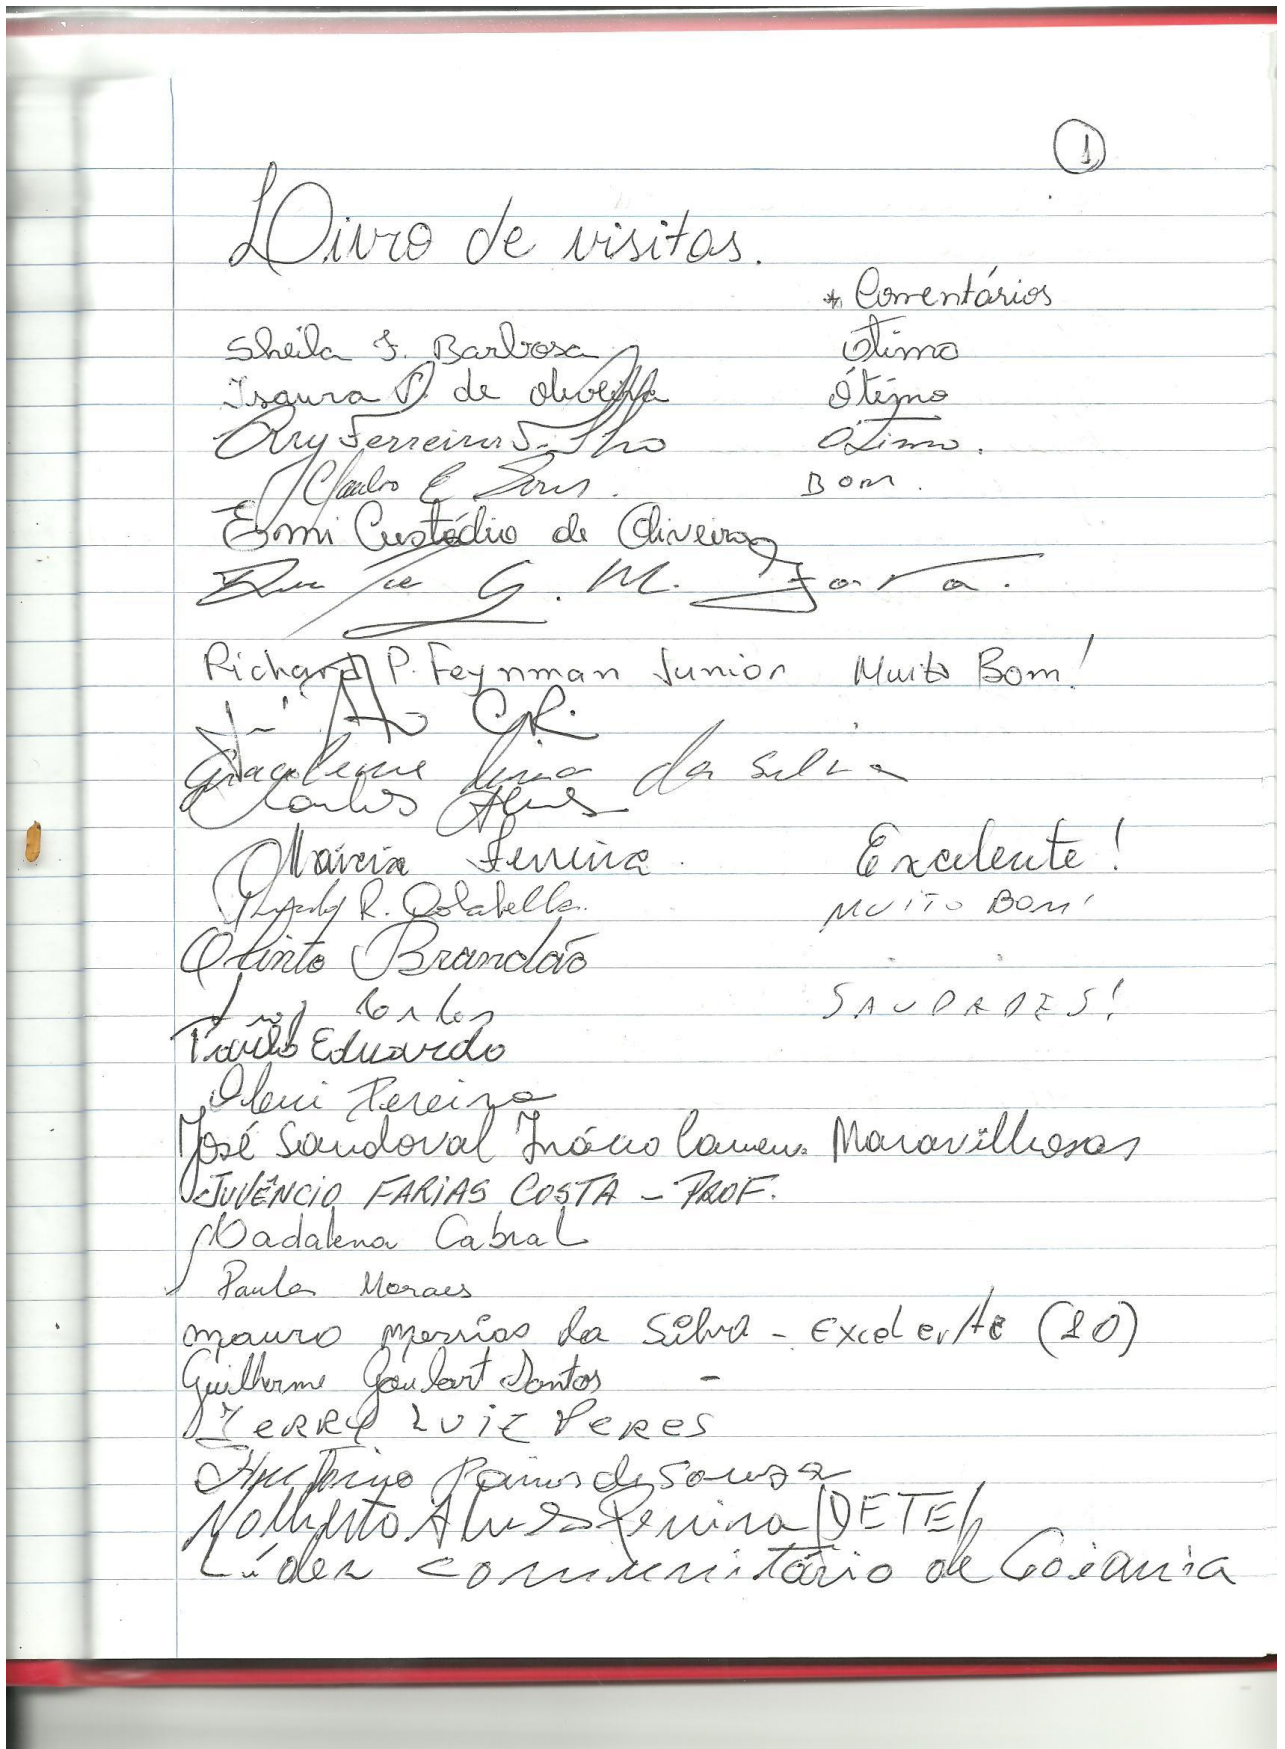 1
Livro de visitas.
* Comentários
Sheila F. Barbosa Ótimo
Isaura P. de Oliveira Ótimo
Ary Ferreira Filho Ótimo.
Bom.
Esmi Custódio de Oliveira
G. M.
Richard P. Feynman Junior Muito Bom!
Lima da Silva
Carlos Alves
Márcia Ferreira. Excelente!
R. Dolabella. MUITO BOM!
Olinto Brandão
Carlos SAUDADES!
Paulo Eduardo
Pereira
José Sandoval Inácio Maravilhosas
JUVÊNCIO FARIAS COSTA - PROF.
Madalena Cabral
Paula Moraes
Mauro Messias da Silva - Excelente (10)
Guilherme Goulart Santos -
JERRY LUIZ PERES
Ramos de Souza
Nolberto Alves Pereira (DETE)
Líder comunitário de Goiania